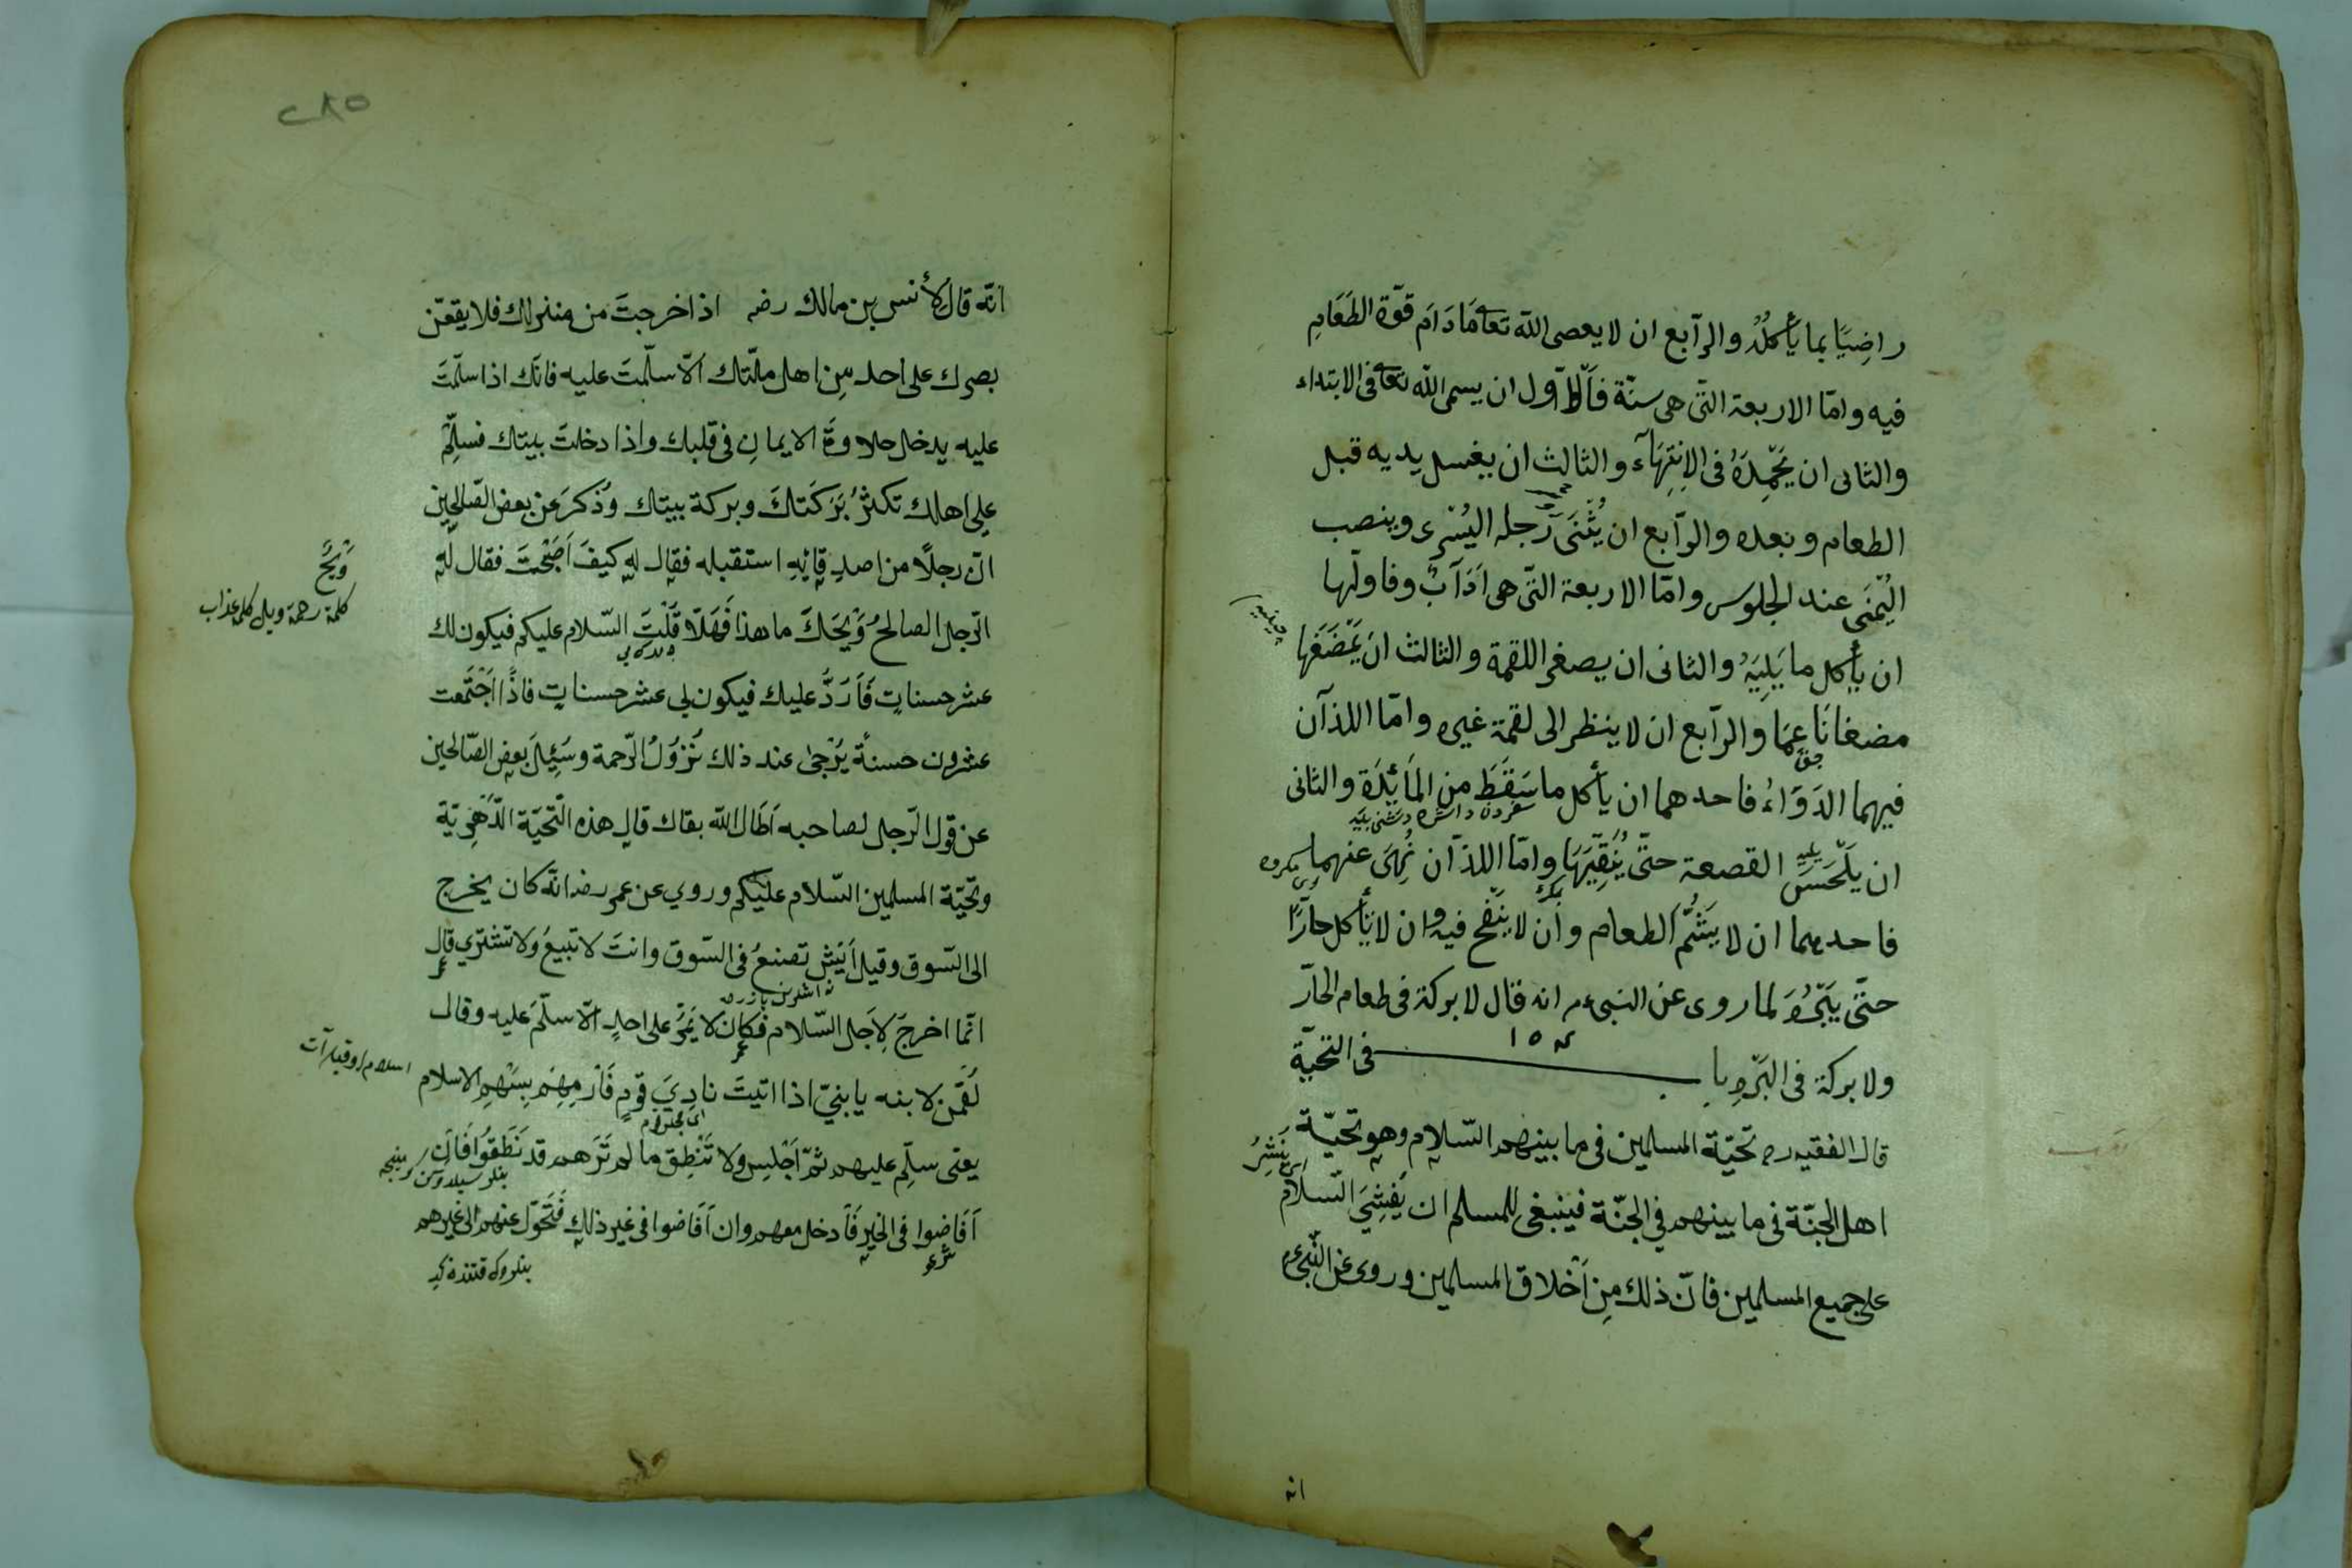 راضِيًا بما يأكلُهُ والرّابع ان لا يعصى اللّه تعا مَا دَامَ قوّة الطَعَامِ
فيه وامّا الاربعة التّى هى سنّة فَالاَوّل ان يسمى اللّه تعا فى الابتداء
والثانى ان يَحْمِدَهُ فى الاِنتِهَآء والثالث ان يغسل يديه قبل
الطعام وبعده والرّابع ان يُثْنَى رِجله اليُسْرى وينصب
اليُمْنَى عند الجلوس وامّا الاربعة التّى هى اَدَآبٌ وفاولّها
ان يأكل ما يَلِيَهُ والثانى ان يصغر اللقمة والثالث ان يَمْضَغَها
مضغا نَاعِمًا والرّابع ان لا ينظر الى لقمة غيره وامّا اللذآن
فيهما الدَوَاءُ فاحدهما ان يأكل ما سَقَطَ من المَائِدَة والثانى
ان يَلْحَسَ القصعة حتّى يُنَقِّيَهَا وامّا اللذآن نُهِىَ عنهما
فاحدهما ان لا يَشُمَّ الطعام وان لا يَنْفخ فيه وان لا يأكل حارًّا
حتّى يَبْرُدَ لما روى عن النبىء م انه قال لا بركة فى طعام الحارّ
ولا بركة فى البَرّ باب فى التحيّة
١٥٨
قال الفقيه ره تحيّة المسلمين فى ما بينهم السّلام وهو تحيّة
اهل الجنّة فى ما بينهم في الجنّة فينبغى للمسلم ان يُفْشِىَ السّلام
على جميع المسلمين فانّ ذلك مِن اَخْلاق المسلمين وروى عن النّبىء م
انه
٢٨٥
انّه قال لأنس بن مالك رضه اذا خرجتَ من منزلك فلا يقعنّ
بصرك على احد مِن اهل ملّتك الاّ سلّمتَ عليه فانّك اذا سلّمتَ
عليه يدخل حلاوةَ الايمانِ فى قلبك واذا دخلتَ بيتك فسلِّمْ
على اهلك تكثرُ بَرَكَتكَ وبركة بيتك وَذكرَ عن بعض الصّالحين
انّ رجلاً من اصدقائِهِ استقبله فقال له كيفَ اَصْبَحْتَ فقال له
الرّجل الصالحُ وَيْحَكَ ما هذا فَهَلاّ قُلْتَ السّلام عليكم فيكون لك
عشر حسناتٍ فَاَرَدَّ عليك فيكون لى عشر حسناتٍ فاذَا اجْتَمعت
عشرون حسنةً يُرْجىٰ عند ذلك نُزوُلُ الرّحمة وسُئِلَ بعض الصّالحين
عن قول الرّجل لصاحبه اَطَالَ اللّه بقاك قال هذه التّحيّة الدّهْرِيّة
وتحيّة المسلمين السّلام عليكم وروي عن عمر رضه انّه كان يخرج
الى السّوق وقيل اَيْش تصنعُ فى السّوق وانتَ لا تبيعُ ولا تشترى قال
انّما اخرجَ لِاَجَل السّلام فكان لا يَمُرُّ على احدٍ الاّ سلّمَ عليه وقال
لُقمٰن لابنه يا بنيّ اذا اتيتَ نادِيَ قومٍ فَاَرْمِهِم بِسَهْمِ الاسلام
يعنى سلِّم عليهم ثمّ اَجْلِس ولا تَنْطِق ما لم تَرَهم قد نَطَقُوا فَاِن
اَفَاضوا فى الخير فَاَدخل معهم وان اَفَاضوا فى غير ذلك فَتَحَوّل عنهم الى غيرهم
وَيْحَ
كلمة رحمة ويل كلمة عذاب